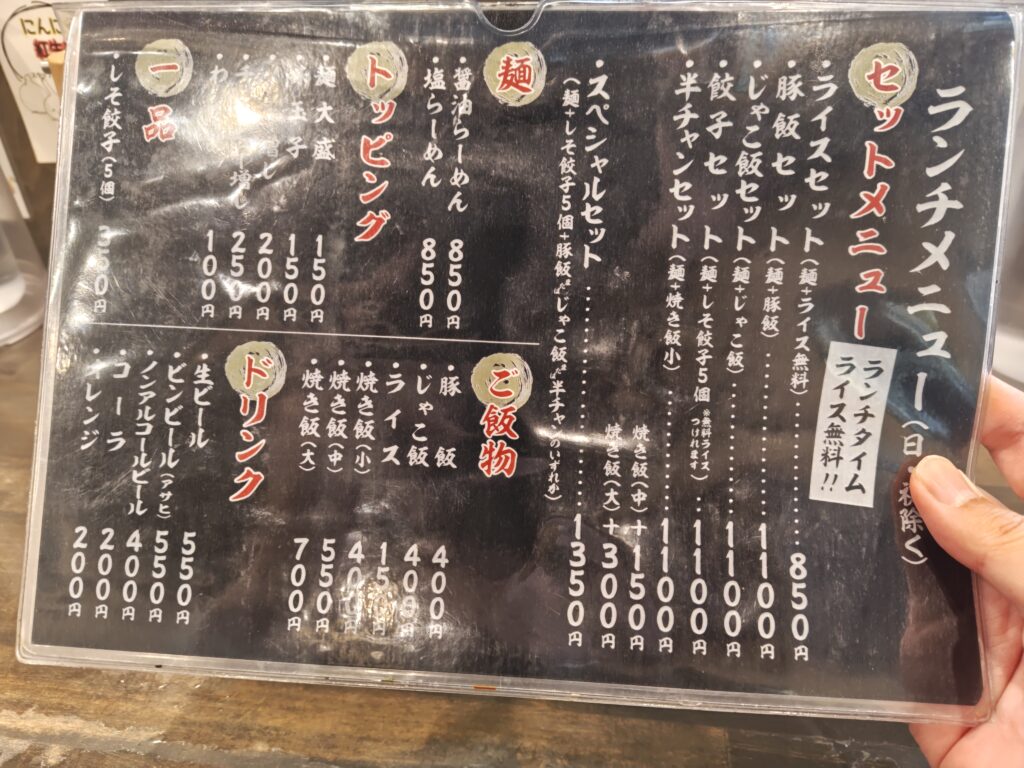 ランチメニュー(日 祝除く)
ランチタイム
ライス無料!!
セットメニュー
・ライスセット(麺+ライス無料)…………850円
・豚飯セット(麺+豚飯)…………1100円
・じゃこ飯セット(麺+じゃこ飯)…………1100円
・餃子セット(麺+しそ餃子5個 ※無料ライスつけれます)…1100円
・半チャンセット(麺+焼き飯小)…………1100円
焼き飯(中)+150円
焼き飯(大)+300円
・スペシャルセット…………1350円
(麺+しそ餃子5個+豚飯 じゃこ飯 半チャンのいずれか)
麺
・醤油らーめん 850円
・塩らーめん 850円
トッピング
・麺大盛 150円
玉子 150円
200円
増し 250円
100円
一品
・しそ餃子(5個) 350円
ご飯物
・豚飯 400円
・じゃこ飯 400円
・ライス 15
・焼き飯(小) 400円
・焼き飯(中) 550円
・焼き飯(大) 700円
ドリンク
・生ビール 550円
・ビンビール(アサヒ) 550円
・ノンアルコールビール 400円
・コーラ 200円
・オレンジ 200円